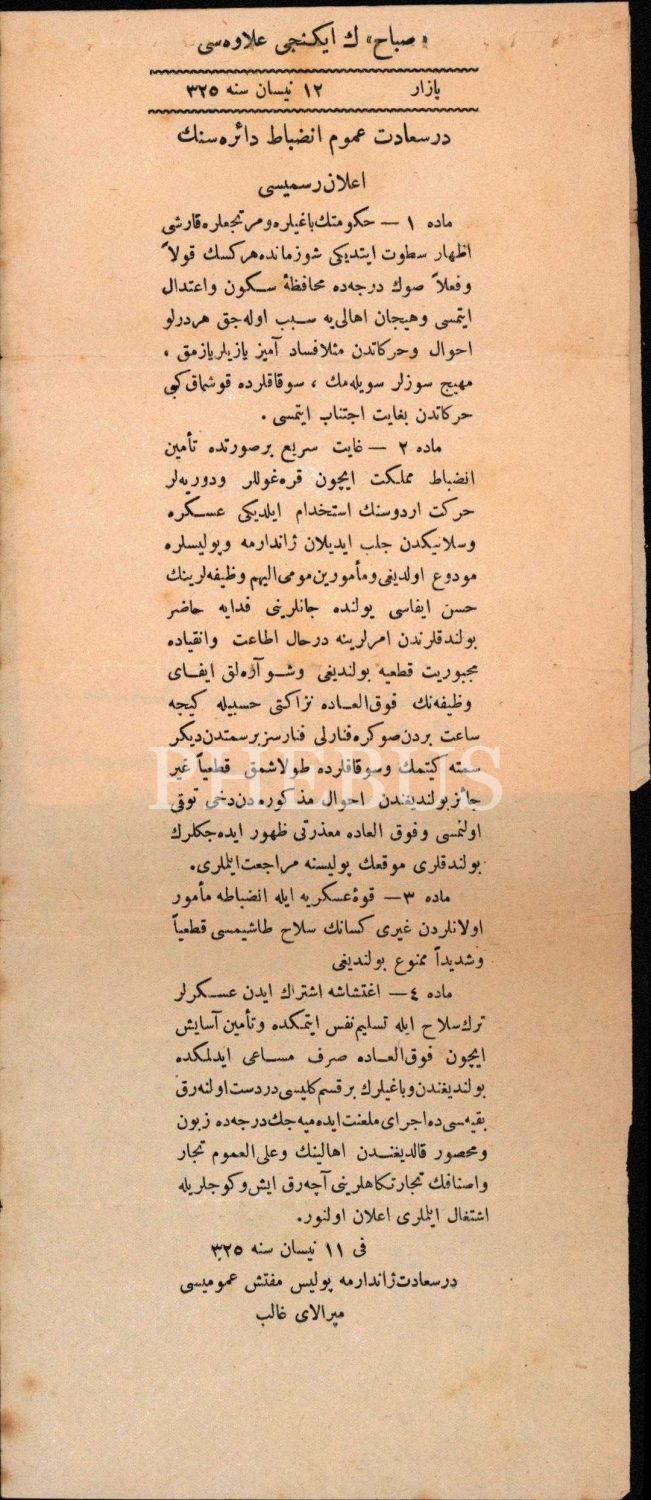 «صباح» ك ایكنجی علاوه‌سی
پازار ١٢ نیسان سنه ٣٢٥
درسعادت عموم انضباط دائره‌سنك
اعلان رسمیسی
ماده ١ — حكومتك باغیلره و مرتجعلره قارشی
اظهار سطوت ایتدیكی شو زمانده هركسك قولاً
وفعلاً صوك درجه‌ده محافظهٔ سكون واعتدال
ایتمسی وهیجان اهالی‌یه سبب اوله‌جق هر درلو
احوال وحركاتدن مثلا فساد آمیز یازیلر یازمق ،
مهیج سوزلر سویله‌مك ، سوقاقلرده قوشماق كبی
حركاتدن بغایت اجتناب ایتمسی .
ماده ٢ — غایت سریع برصورتده تأمین
انضباط مملكت ایچون قره‌غوللر ودوریه‌لر
حركت اردوسنك استخدام ایلدیكی عسكره
وسلانیكدن جلب ایدیلان ژاندارمه وپولیسلره
مودوع اولدیغی ومأمورین مومی الیهم وظیفه‌لرینك
حسن ایفاسی یولنده جانلرینی فدایه حاضر
بولندقلرندن امرلرینه درحال اطاعت وانقیاده
مجبوریت قطعیه بولندیغی وشو آره‌لق ایفای
وظیفه‌نك فوق‌العاده نزاكتی حسبیله كیجه
ساعت بردن صوكره فنارلی فنارسز برسمتدن دیكر
سمته كیتمك وسوقاقلرده طولاشمق قطعیاً غیر
جائز بولندیغندن احوال مذكوره‌دن دخی توقی
اولنمسی وفوق العاده معذرتی ظهور ایده‌جكلرك
بولندقلری موقعك پولیسنه مراجعت ایلملری.
ماده ٣— قوهٔ عسكریه ایله انضباطه مأمور
اولانلردن غیری كسانك سلاح طاشیمسی قطعیاً
وشدیداً ممنوع بولندیغی
ماده ٤— اغتشاشه اشتراك ایدن عسكرلر
ترك سلاح ایله تسلیم نفس ایتمكده وتأمین آسایش
ایچون فوق‌العاده صرف مساعی ایدلمكده
بولندیغندن وباغیلرك بر قسم كلیسی دردست اولنه‌رق
بقیه‌سی ده اجرای ملعنت ایده‌میه‌جك درجه‌ده زبون
ومحصور قالدیغندن اهالینك وعلی العموم تجار
واصنافك تجارتكاهلرینی آچه‌رق ایش وكوجلریله
اشتغال ایلملری اعلان اولنور.
فی ١١ نیسان سنه ٣٢٥
درسعادت ژاندارمه پولیس مفتش عمومیسی
میرالای غالب
PHEBUS